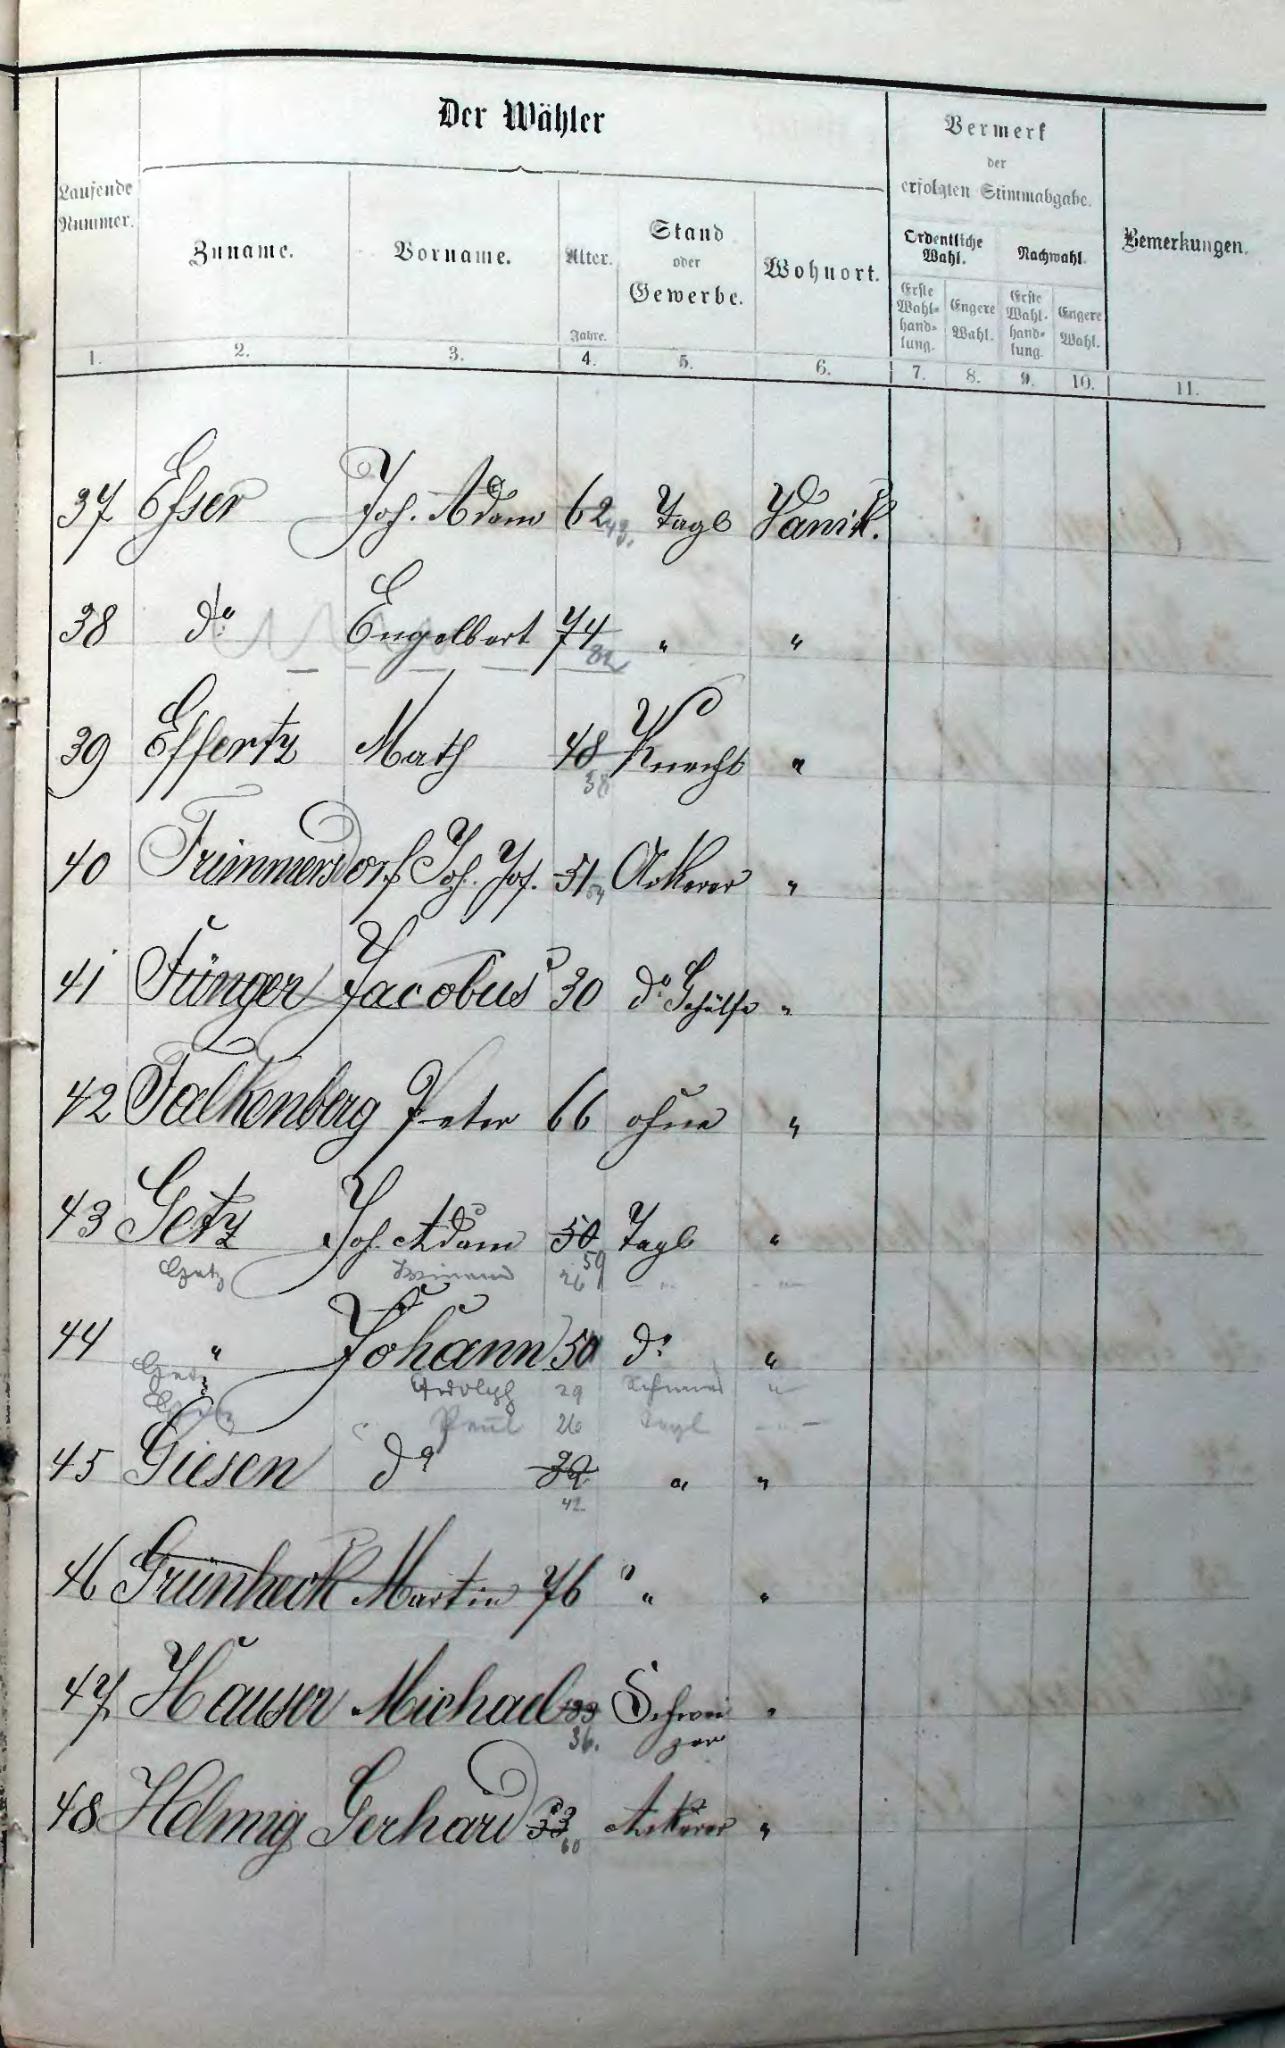 Der Wähler
Vermerk
der
erfolgten Stimmabgabe.
Laufende
Nummer.
Zuname.
Vorname.
Alter.
Jahre.
Stand
oder
Gewerbe.
Wohnort.
Ordentliche
Wahl.
Nachwahl.
Erste
Wahl-
hand-
lung.
Engere
Wahl.
Erste
Wahl-
hand-
lung.
Engere
Wahl.
Bemerkungen.
1. 2. 3. 4. 5. 6. 7. 8. 9. 10. 11.
37 Esser Joh. Adam 62 Tagl
38 do Engelbert 74 " "
82
39 Effertz Math 48 Knecht "
58
40 Frimmersdorf Joh. Jos. 51 Ackerer "
41 Fünger Jacobus 30 do Gehülfe "
42 Falkenberg Peter 66 ohne "
43 Getz Joh. Adam 50 Tagl "
59
Getz 26 - " - - " -
44 " Johann 50 do "
Getz Adolph 29 "
Getz Paul 26 Tagl - " -
45 Giesen do 32 " "
42
46 Grünheck Martin 76 " "
47 Hauser Michael 33 Schwei "
36. zer
48 Helmig Gerhard 53 Ackerer "
60